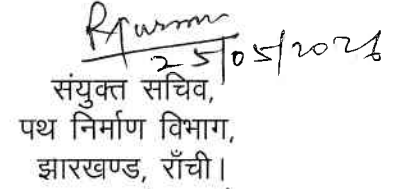 25/05/2026
संयुक्त सचिव,
पथ निर्माण विभाग,
झारखण्ड, राँची।